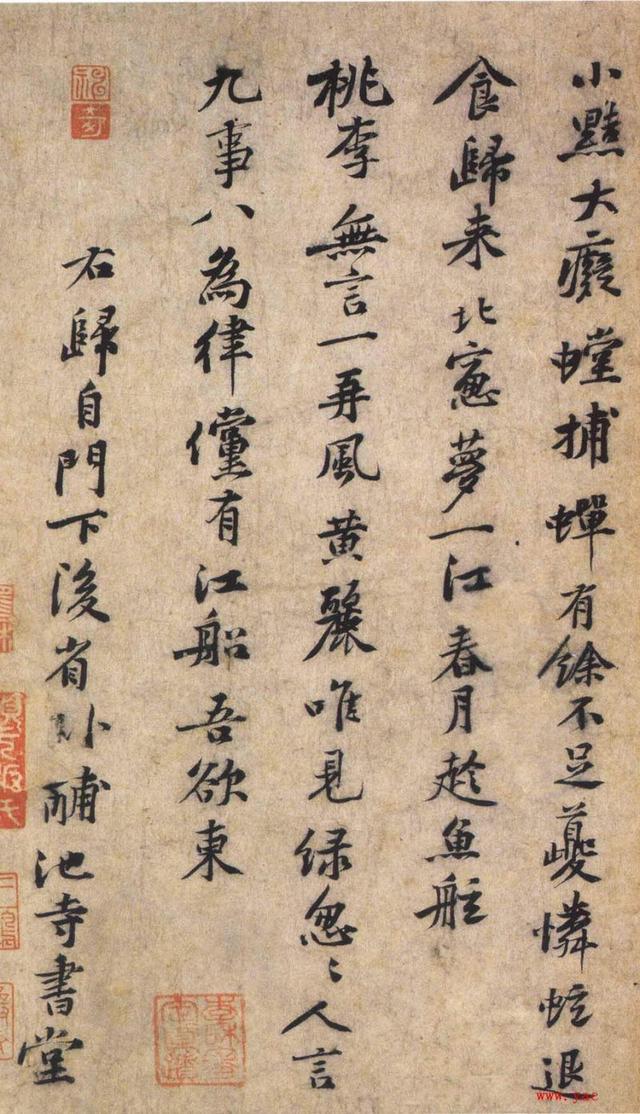 小黠大癡螳捕蟬有餘不足夔憐蚿退
食歸来北窻夢一江春月趁魚舡
桃李無言一再風黄麗唯見緑怱〻人言
九事八為律儻有江船吾欲東
右歸自門下後省卧酺池寺書堂
www.yac